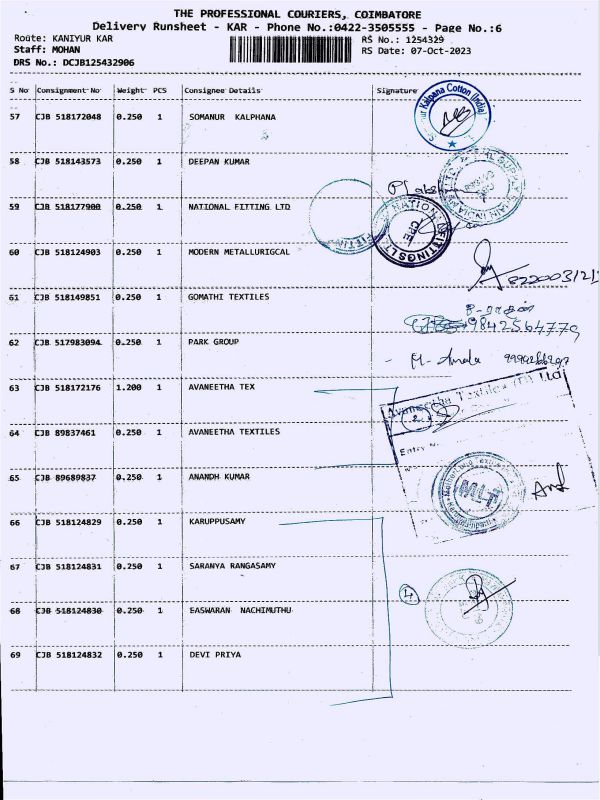 THE PROFESSIONAL COURIERS, COIMBATORE
Delivery Runsheet - KAR - Phone No.:0422-3505555 - Page No.:6
Route: KANIYUR KAR
RS No.: 1254329
Staff: MOHAN
RS Date: 07-Oct-2023
DRS No.: DCJB125432906
S No Consignment No Weight PCS Consignee Details Signature
57 CJB 518172048 0.250 1 SOMANUR KALPHANA
Kalpana Cotton (India)
58 CJB 518143573 0.250 1 DEEPAN KUMAR
59 CJB 518177900 0.250 1 NATIONAL FITTING LTD
NATIONAL FITTINGS LT
60 CJB 518124903 0.250 1 MODERN METALLURIGCAL
61 CJB 518149851 0.250 1 GOMATHI TEXTILES
9842564779
62 CJB 517983094 0.250 1 PARK GROUP
63 CJB 518172176 1.200 1 AVANEETHA TEX
Avaneetha Textiles (P) Ltd
64 CJB 89837461 0.250 1 AVANEETHA TEXTILES
2
Entry No.
65 CJB 89689837 0.250 1 ANANDH KUMAR
MLT
66 CJB 518124829 0.250 1 KARUPPUSAMY
67 CJB 518124831 0.250 1 SARANYA RANGASAMY
4
68 CJB 518124830 0.250 1 EASWARAN NACHIMUTHU
69 CJB 518124832 0.250 1 DEVI PRIYA